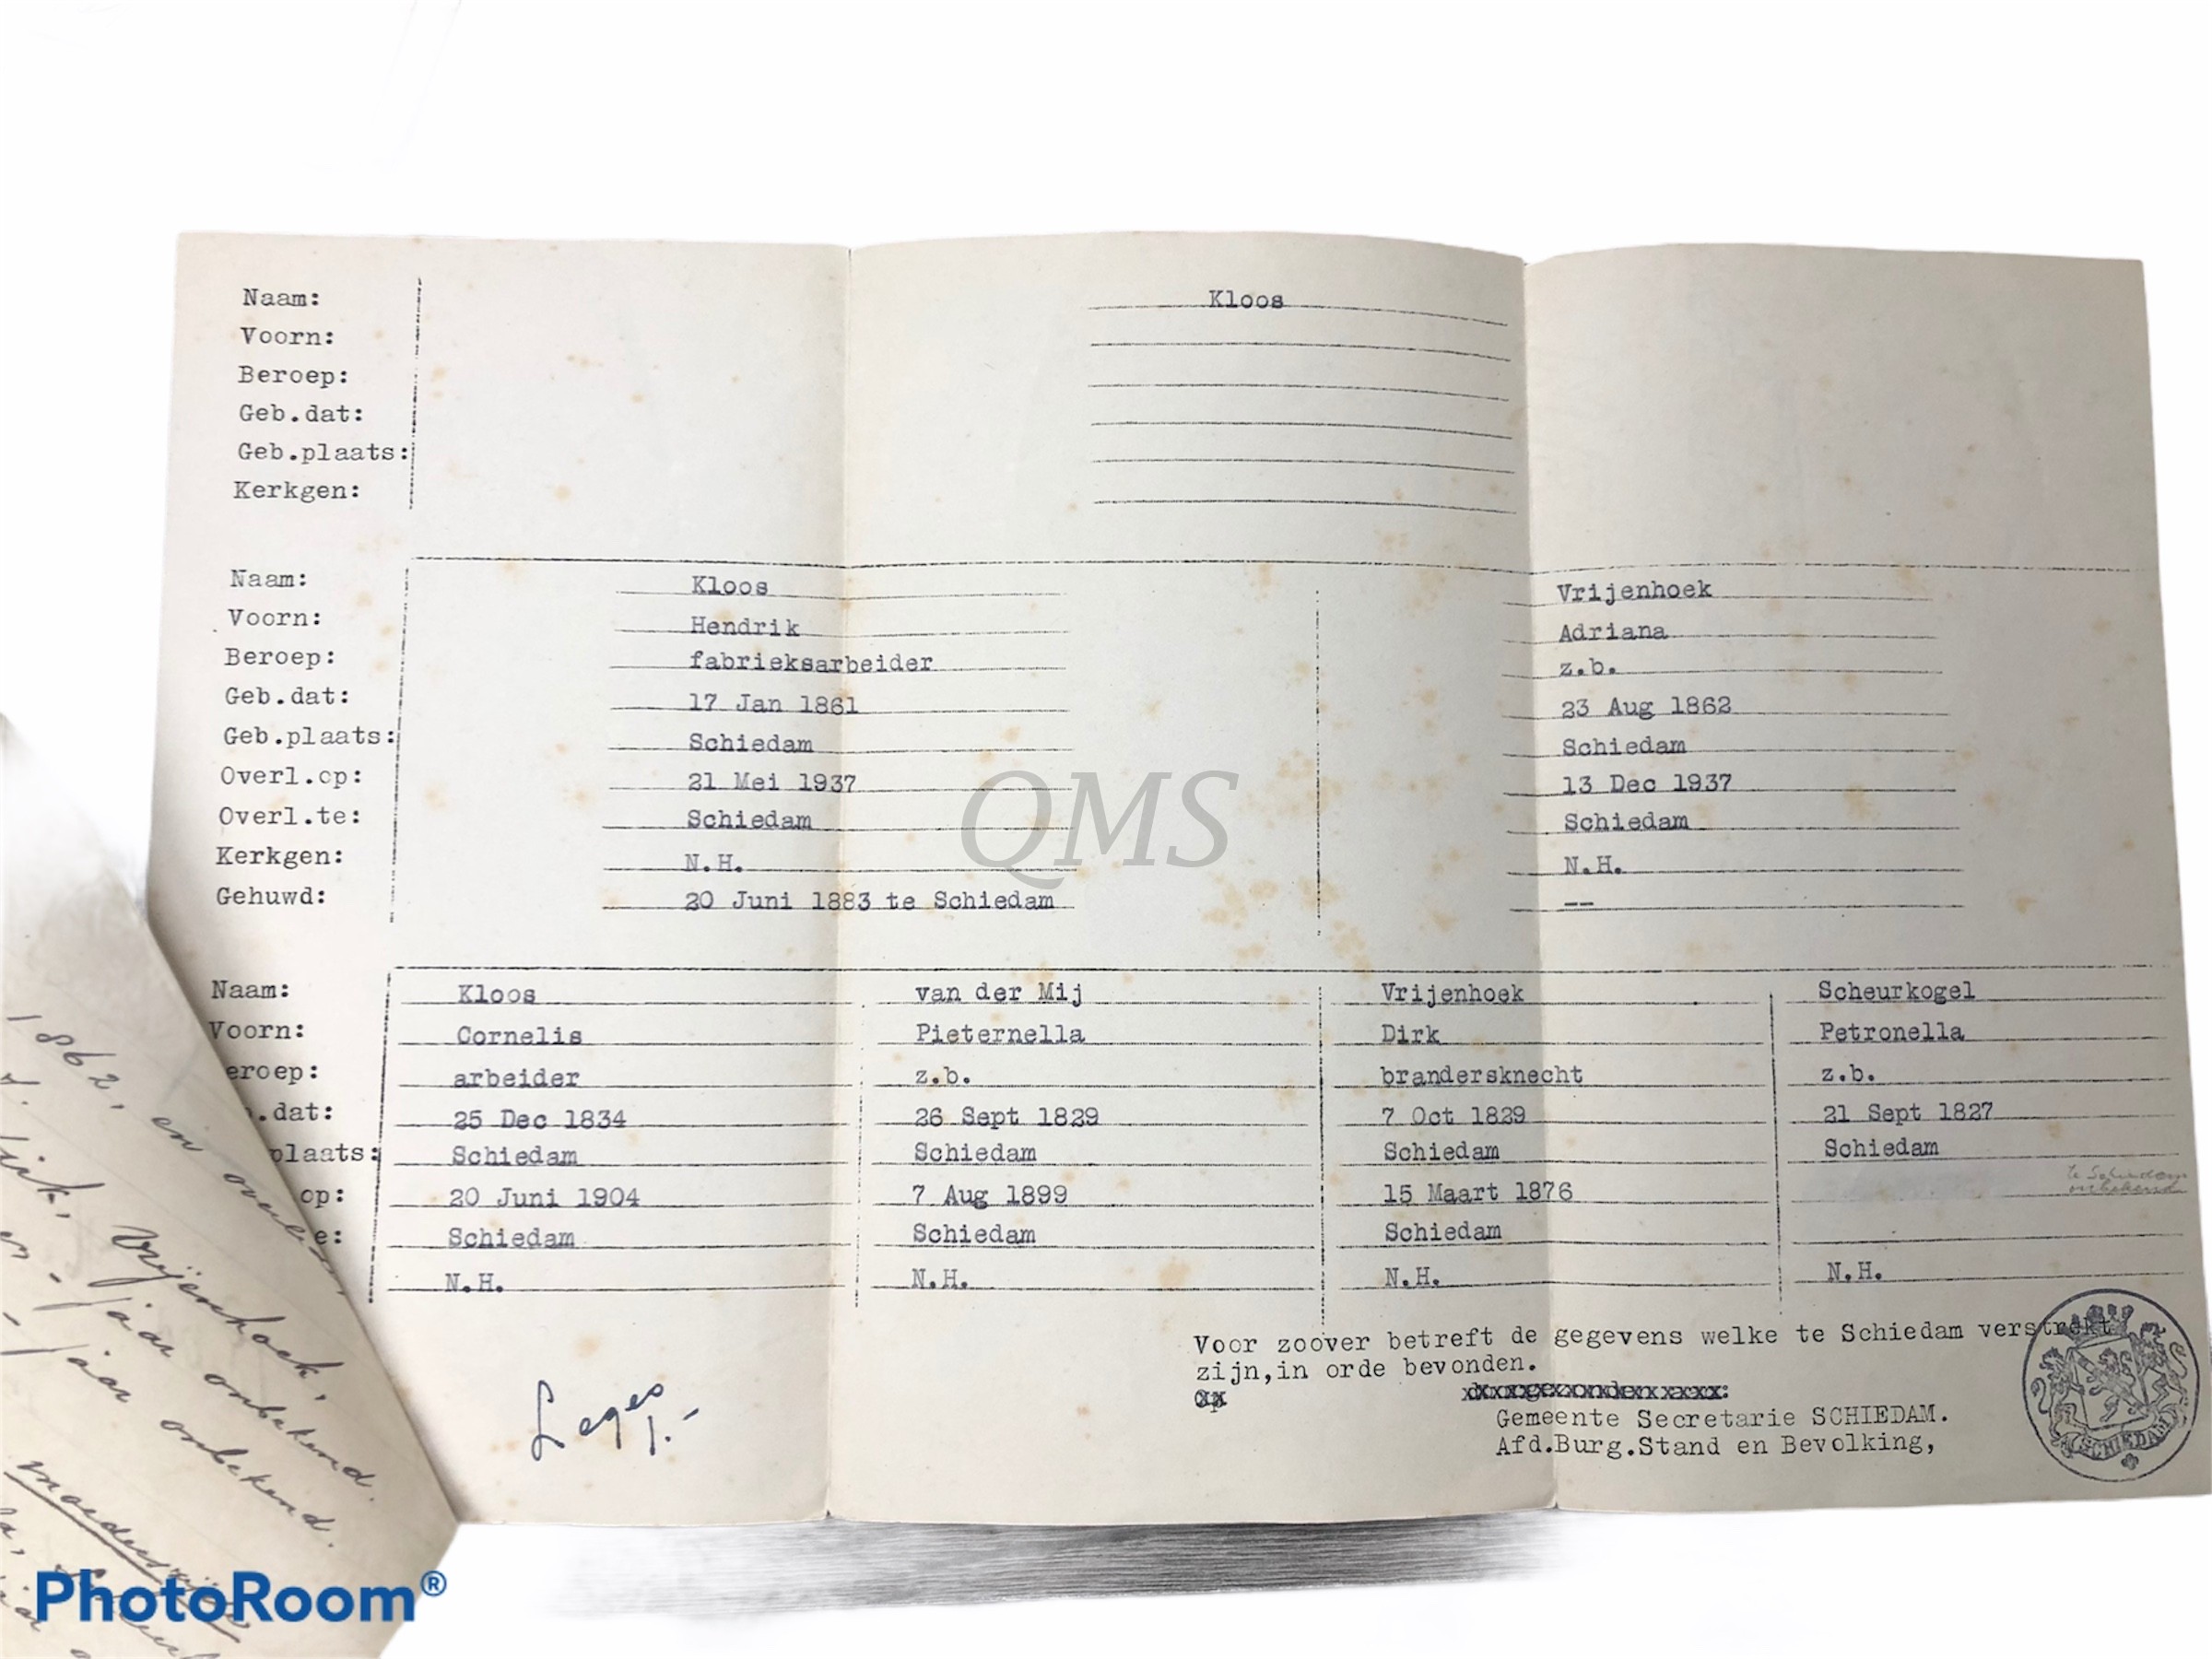 Naam: Kloos
Voorn:
Beroep:
Geb.dat:
Geb.plaats:
Kerkgen:
Naam: Kloos Vrijenhoek
Voorn: Hendrik Adriana
Beroep: fabrieksarbeider z.b.
Geb.dat: 17 Jan 1861 23 Aug 1862
Geb.plaats: Schiedam Schiedam
Overl.op: 21 Mei 1937 13 Dec 1937
Overl.te: Schiedam Schiedam
Kerkgen: N.H. N.H.
Gehuwd: 20 Juni 1883 te Schiedam --
QMS
Naam: Kloos van der Mij Vrijenhoek Scheurkogel
Voorn: Cornelis Pieternella Dirk Petronella
eroep: arbeider z.b. brandersknecht z.b.
.dat: 25 Dec 1834 26 Sept 1829 7 Oct 1829 21 Sept 1827
plaats: Schiedam Schiedam Schiedam Schiedam
te Schiedam
onbekend
op: 20 Juni 1904 7 Aug 1899 15 Maart 1876
e: Schiedam Schiedam Schiedam
N.H. N.H. N.H. N.H.
Voor zoover betreft de gegevens welke te Schiedam verstrekt
zijn,in orde bevonden.
Gemeente Secretarie SCHIEDAM.
Afd.Burg.Stand en Bevolking,
SCHIEDAM
Leges 1.-
1862, en
Vrijenhoek,
- Jaar onbekend.
- Jaar onbekend.
PhotoRoom®